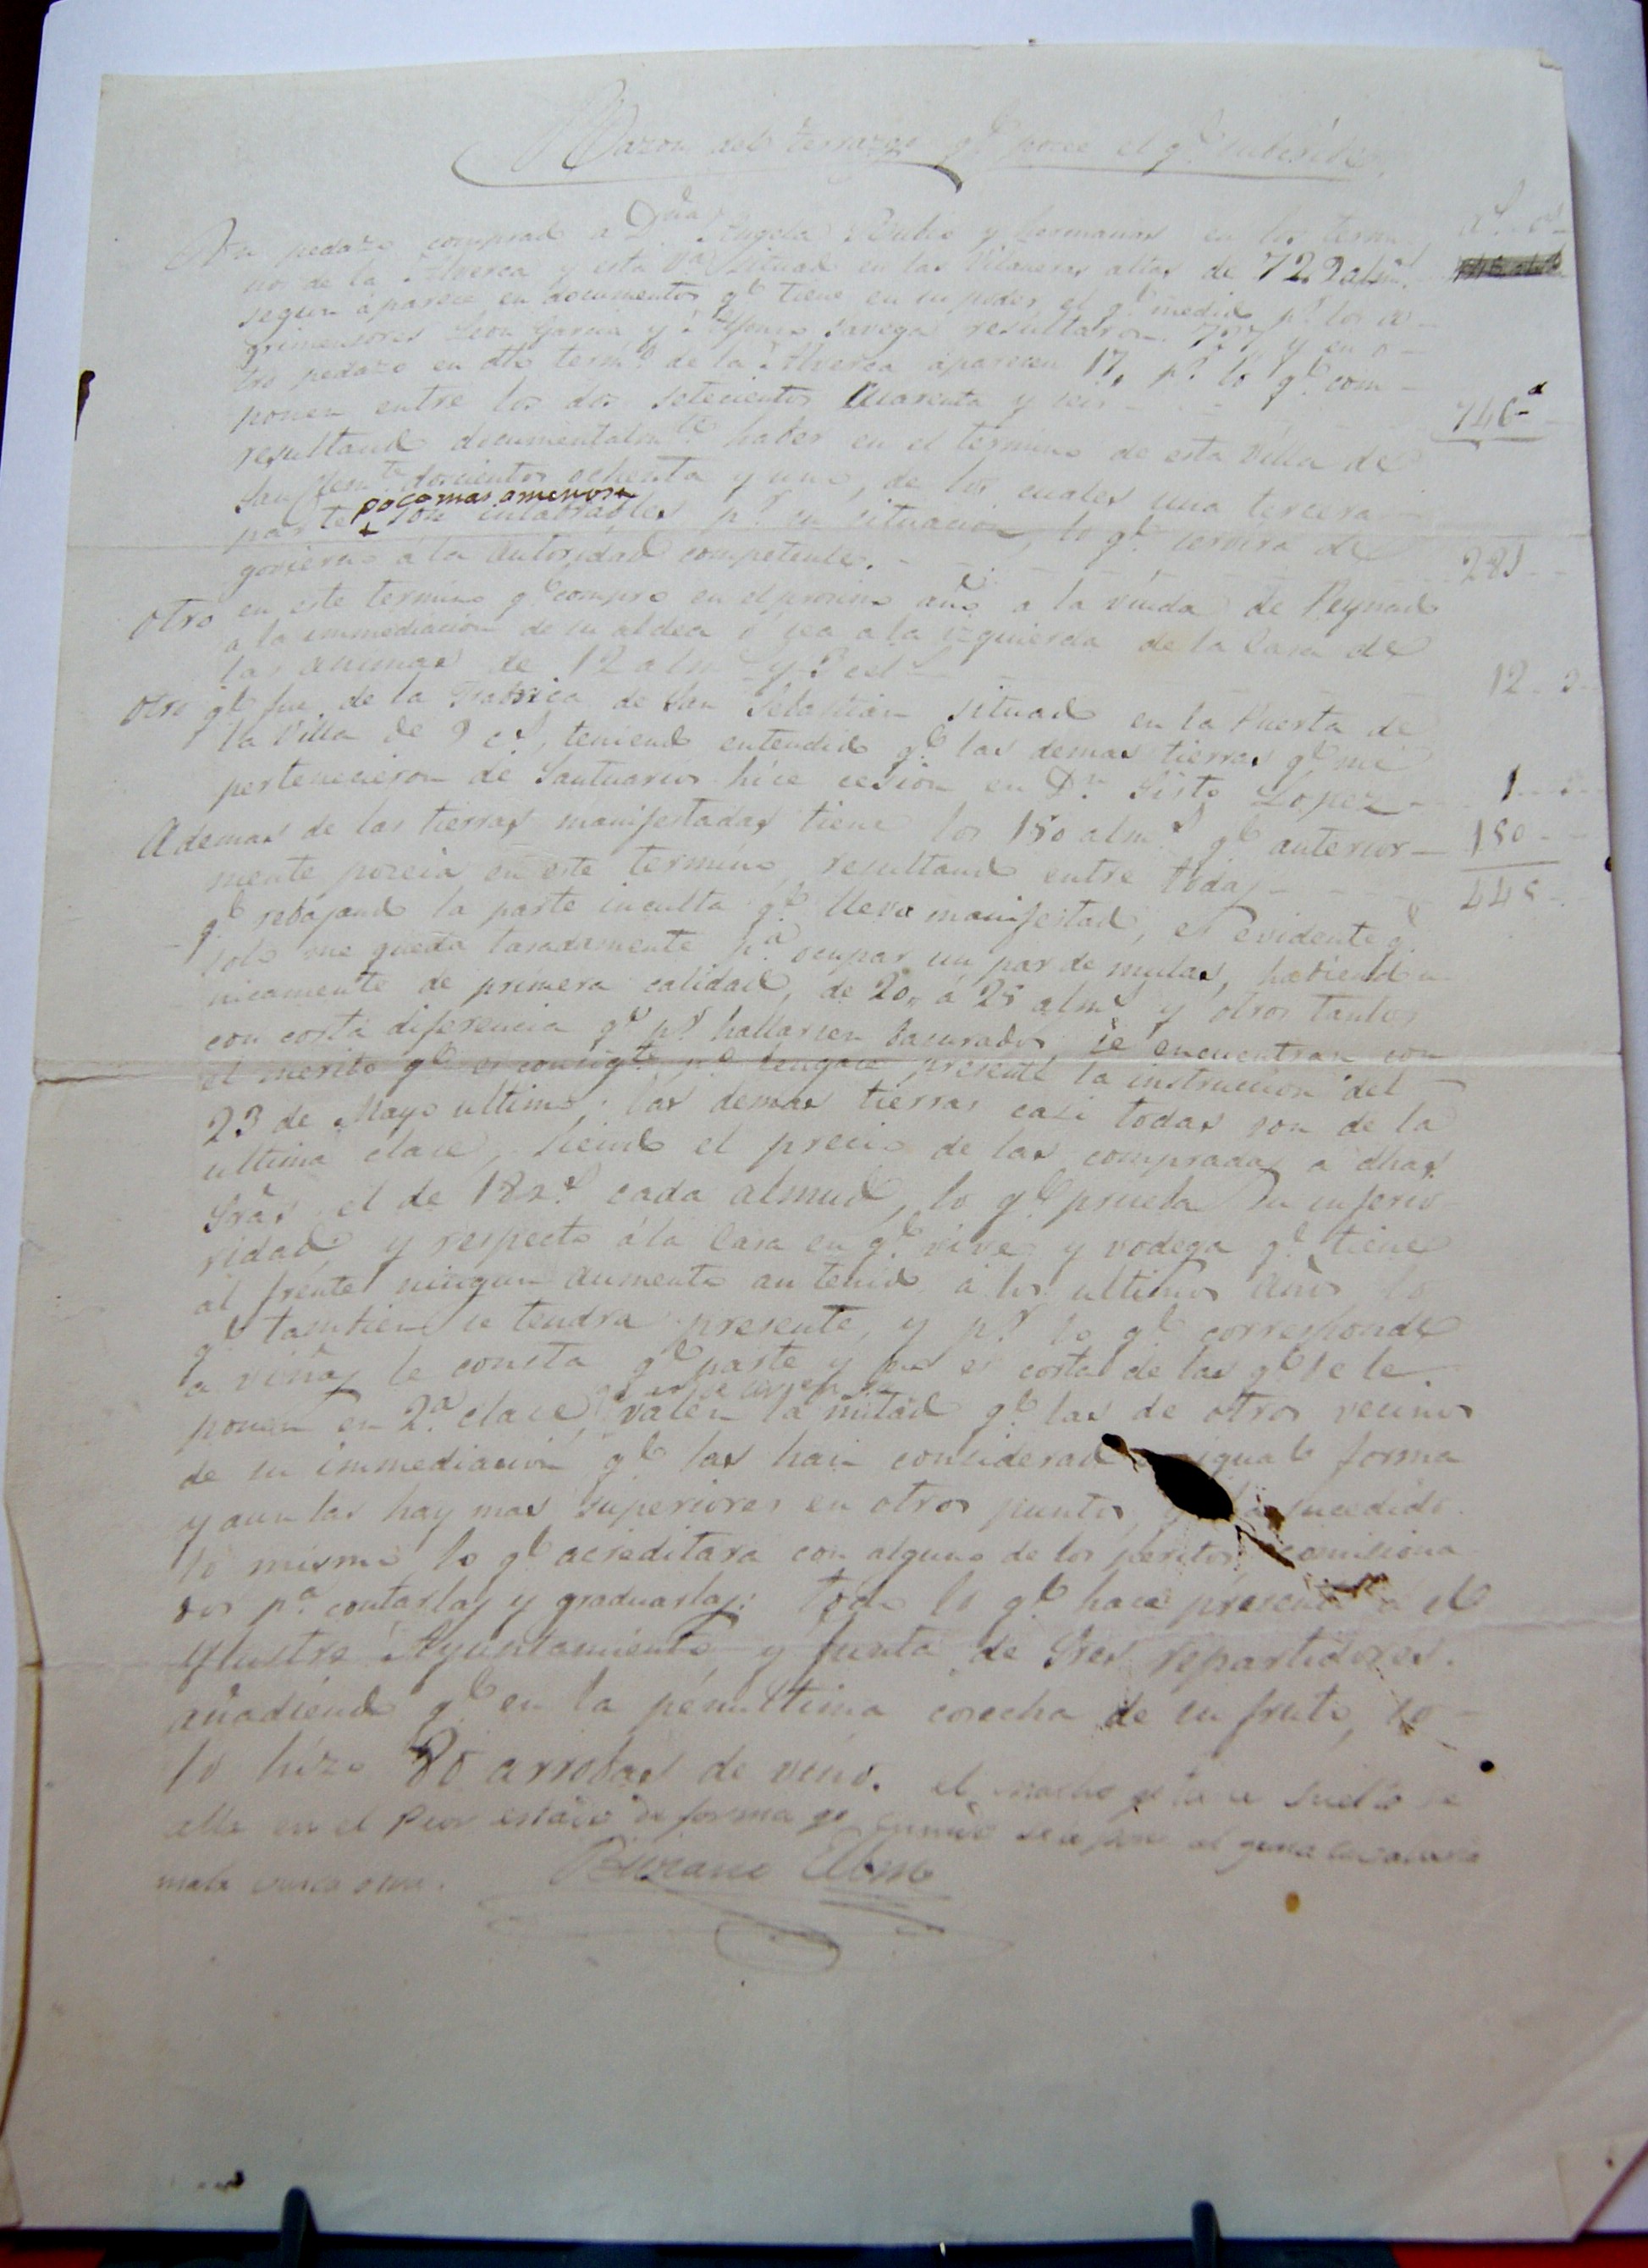 Razon del terrazgo qe. posee el qe. subscribe
Un pedazo comprado a Dña Angela Rubio y hermanas en los termi
nos de la Alverca y esta Va. situado en las Vilaneras altas de 729 alms.
segun áparece en documentos qe. tiene en su poder, el qe. medido pr. los a
grimensores Leon Garcia y Alfonso resultaron 707 y en o
tro pedazo en dho termo. de la Alverca áparecen 17, pr. lo qe. com
ponen entre los dos setecientos Cuarenta y seis 746
resultando documentalmte. haber en el termino de esta Villa de
San Clemte. doscientos ochenta y uno, de los cuales una tercera
poco mas o menos
parte son inlabrables pr. su situacion, lo qe. servirá de
govierno á la autoridad competente. 281
Otro en este termino qe. compro en el procimo año a la viuda de Peynado
a la immediacion de su aldea ó sea a la izquierda de la Casa de
las animas de 12 alms. y 3 cels. 12 3
Otro qe. fue de la Fabrica de San Sebastian situado en la Puerta de
la Villa de 9 cs., teniendo entendido qe. las demas tierras qe. me
pertenecieron de Santuarios hice cesion en Dn. Sisto Lopez 1
Ademas de las tierras manifestadas tiene los 150 alms. qe. anterior 150
mente poseia en este termino, resultando entre todas 445
qe. rebajando la parte inculta qe. lleva manifestado, es evidente qe.
solo me queda tasadamente pa. ocupar un par de mulas, habiendo u
nicamente de primera calidad, de 20 á 25 alms. y otros tantos
con corta diferencia qe. pr. hallarsen basurados, se encuentran con
el merito qe. es consigte. pa. tengase presente la instruccion del
23 de Mayo ultimo; las demas tierras casi todas son de la
ultima clase, siendo el precio de las compradas á dhas
Sras. el de 18 rs. cada almud, lo qe. prueba su inferio
ridad, y respecto á la Casa en qe. vive y vodega qe. tiene
al frente ningun aumento an tenido á los ultimos años lo
qe. tambien se tendra presente, y pr. lo qe. corresponde
a viñas le consta qe. parte y es corta de las qe. se le
ponen en 2a. clace, valen la mitad qe. las de otros vecinos
de su immediacion qe. las han considerado igual forma
y aun las hay mas superiores en otros puntos, sucedido
lo mismo, lo qe. acreditara con alguno de los peritos comisiona
dos pa. contarlas y graduarlas: todo lo qe. hace presente a el
Yllustre Ayuntamiento y Junta de Sres repartidores.
añadiendo qe. en la penultima cosecha de su fruto, so
lo hizo 80 arrobas de vino. el macho suelto se
alla en el peor estado de forma qe
mala